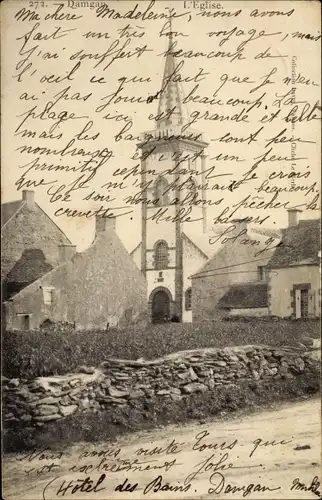 272. Damgan _ L'Eglise.
Ma chère Madeleine, nous avons
fait un très bon voyage, mais
j'ai souffert beaucoup de
l'œil ce qui fait que je n'ai
pas joui beaucoup. La
plage ici est grande et belle
mais les baigneurs sont peu
nombreux et un peu
primitifs cependant ce
qui m'a plairait beaucoup
c'est d'aller pêcher la
crevette. Mille baisers
Solange
Nous avons visité Tours qui
est extrêmement jolie.
(Hôtel des Bains. Damgan